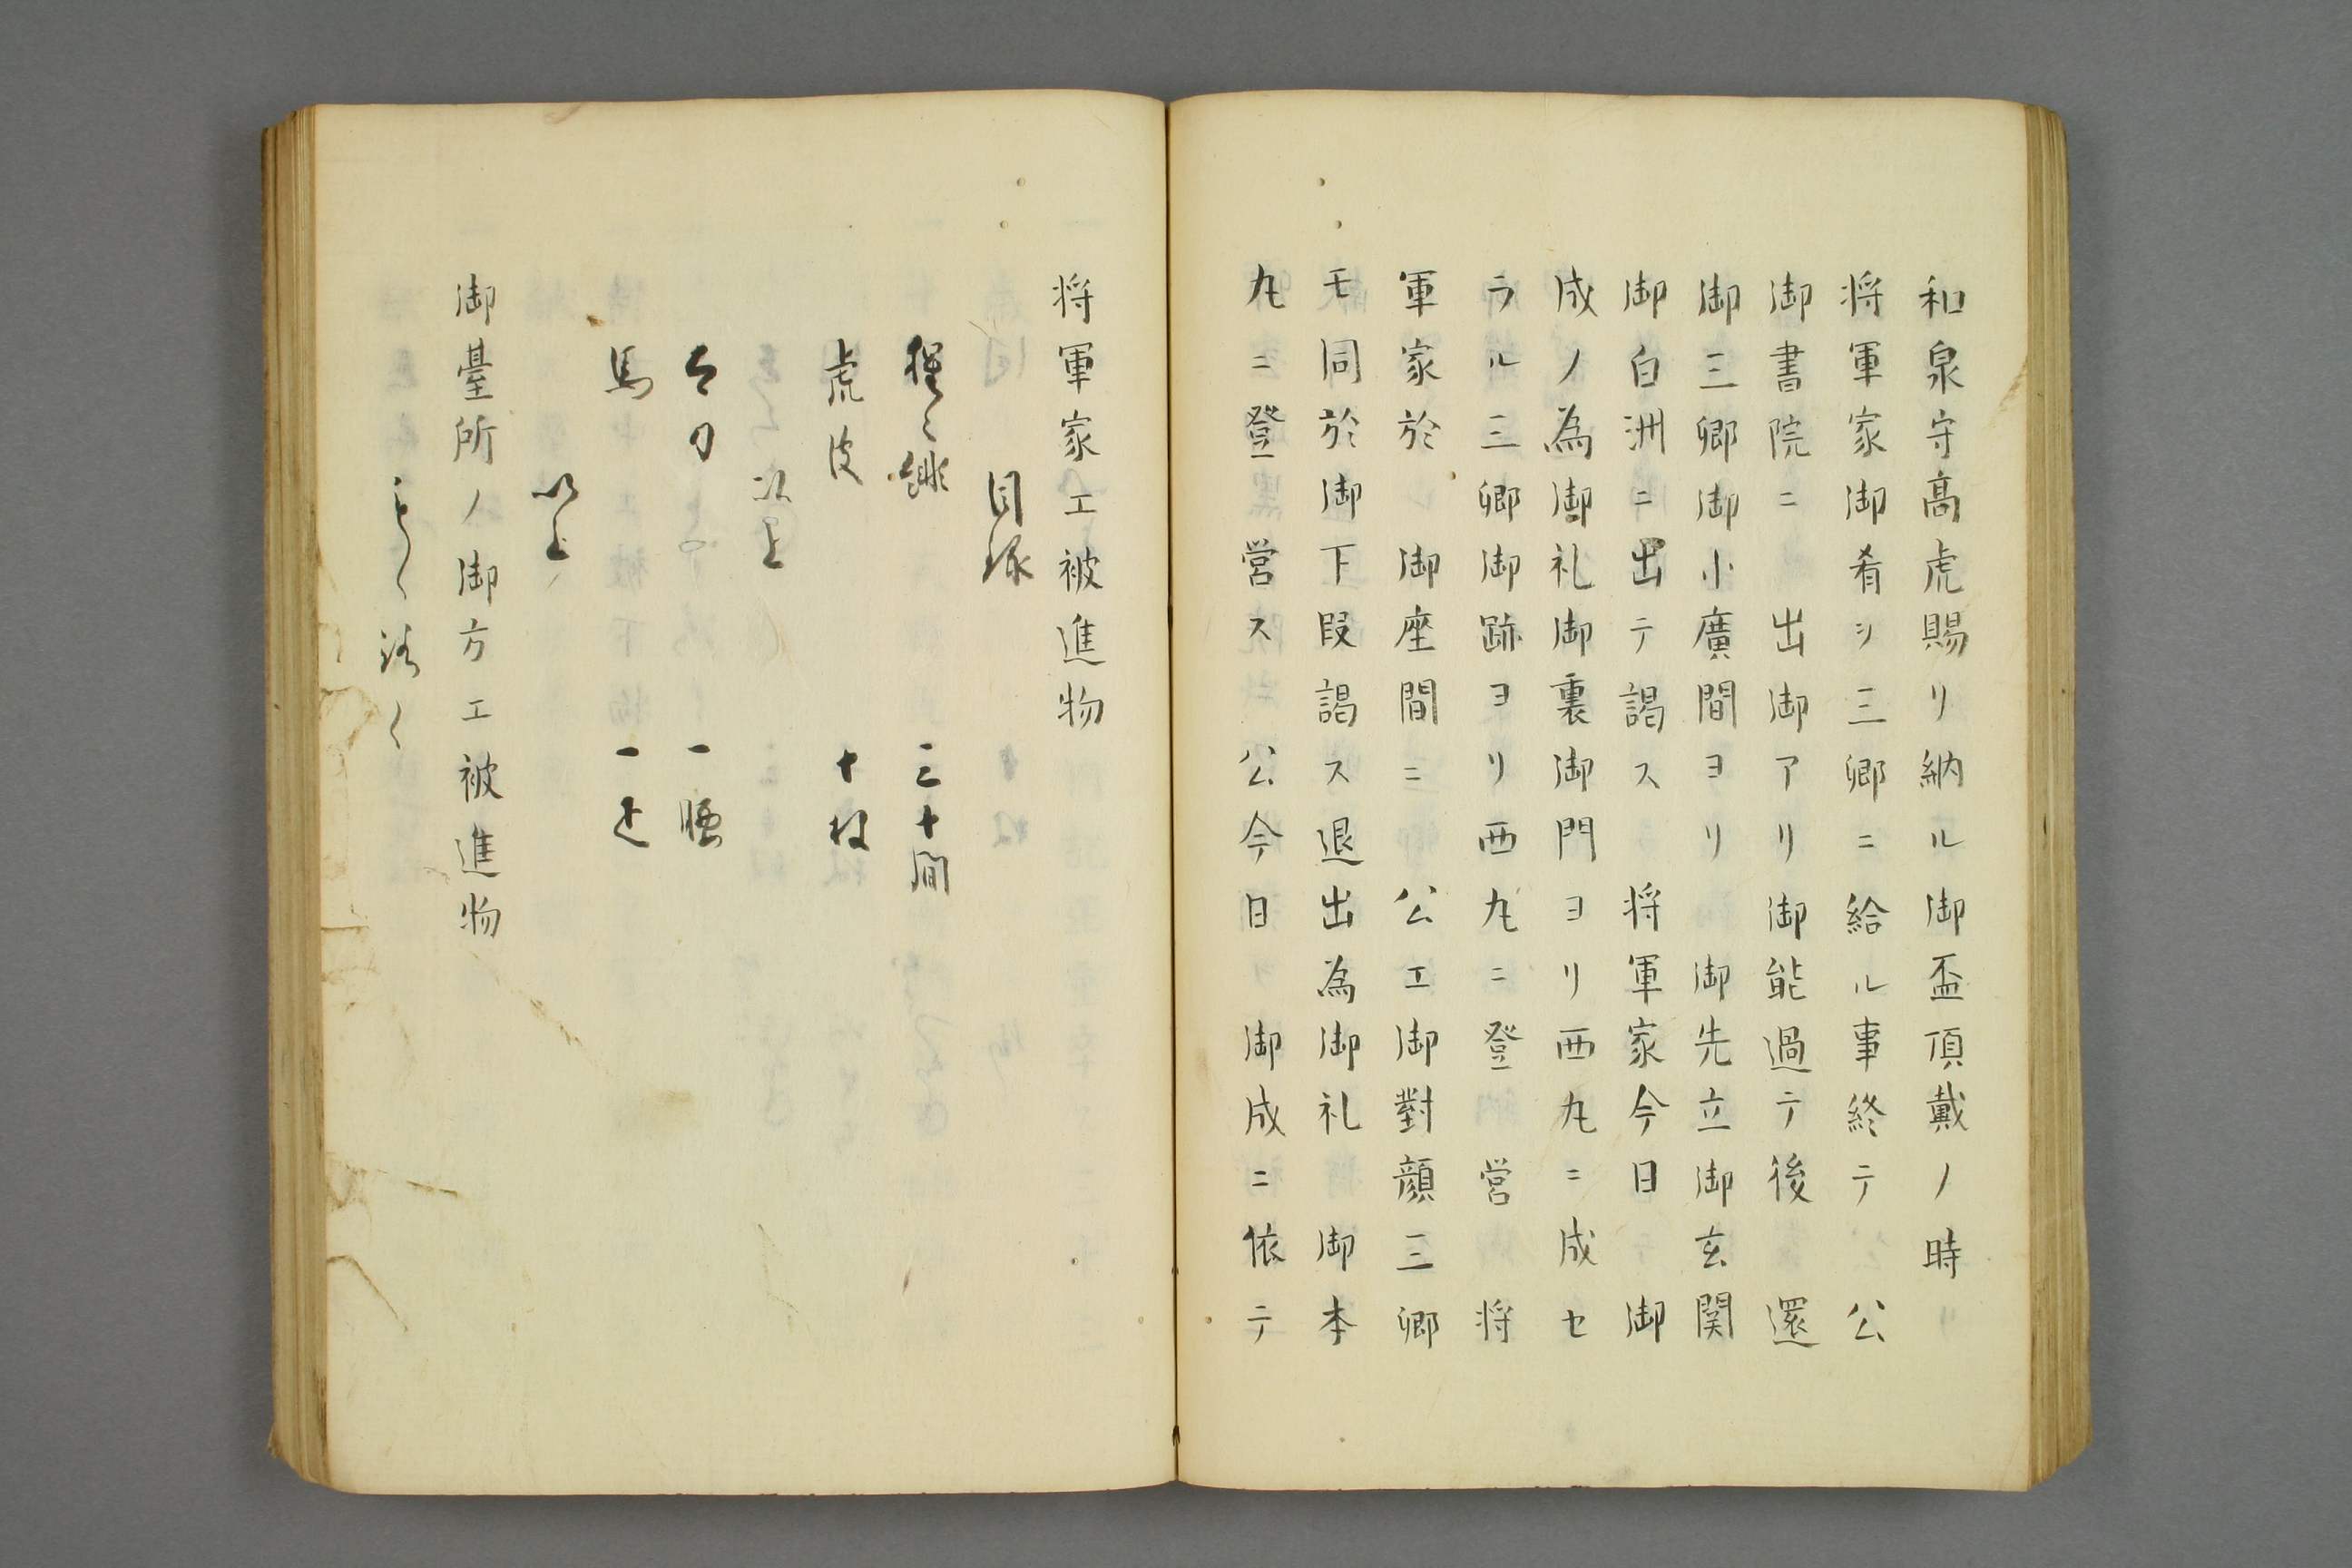 和泉守高虎賜リ納ル御盃頂戴ノ時
将軍家御肴ヲ三卿ニ給ル事終テ　公
御書院ニ　出御アリ御能過テ後　還
御三卿御小廣間ヨリ　御先立御玄関
御白洲ニ出テ謁ス　将軍家今日　御
成ノ為御礼御裏御門ヨリ西丸ニ成セ
ラル三卿御跡ヨリ西丸ニ登　営　将
軍家於　御座間ニ　公エ御對顔三卿
モ同於御下段謁ス退出為御礼　御本
丸ニ登　営ス　公今日　御成ニ依テ
将軍家エ被進物
目録
猩〻緋　三十間
虎皮　十枚
以上
太刀　一腰
馬　一疋
以上
御臺所ノ御方エ被進物